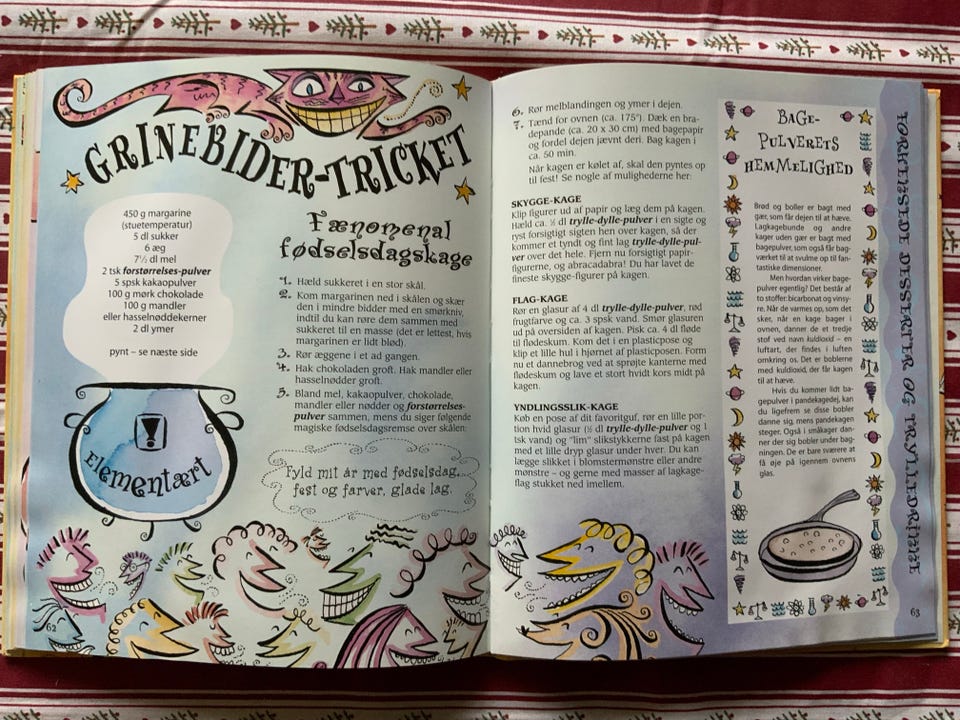 GRINEBIDER-TRICKET
450 g margarine
(stuetemperatur)
5 dl sukker
6 æg
7½ dl mel
2 tsk forstørrelses-pulver
5 spsk kakaopulver
100 g mørk chokolade
100 g mandler
eller hasselnøddekerner
2 dl ymer
pynt – se næste side
Elementært
Fænomenal
fødselsdagskage
1. Hæld sukkeret i en stor skål.
2. Kom margarinen ned i skålen og skær
den i mindre bidder med en smørkniv,
indtil du kan røre dem sammen med
sukkeret til en masse (det er lettest, hvis
margarinen er lidt blød).
3. Rør æggene i et ad gangen.
4. Hak chokoladen groft. Hak mandler eller
hasselnødder groft.
5. Bland mel, kakaopulver, chokolade,
mandler eller nødder og forstørrelses-
pulver sammen, mens du siger følgende
magiske fødselsdagsremse over skålen:
Fyld mit år med fødselsdag,
fest og farver, glade lag.
62
6. Rør melblandingen og ymer i dejen.
7. Tænd for ovnen (ca. 175°). Dæk en bra-
depande (ca. 20 x 30 cm) med bagepapir
og fordel dejen jævnt deri. Bag kagen i
ca. 50 min.
Når kagen er kølet af, skal den pyntes op
til fest! Se nogle af mulighederne her:
SKYGGE-KAGE
Klip figurer ud af papir og læg dem på kagen.
Hæld ca. ½ dl trylle-dylle-pulver i en sigte og
ryst forsigtigt sigten hen over kagen, så der
kommer et tyndt og fint lag trylle-dylle-pul-
ver over det hele. Fjern nu forsigtigt papir-
figurerne, og abracadabra! Du har lavet de
fineste skygge-figurer på kagen.
FLAG-KAGE
Rør en glasur af 4 dl trylle-dylle-pulver, rød
frugtfarve og ca. 3 spsk vand. Smør glasuren
ud på oversiden af kagen. Pisk ca. 4 dl fløde
til flødeskum. Kom det i en plasticpose og
klip et lille hul i hjørnet af plasticposen. Form
nu et dannebrog ved at sprøjte kanterne med
flødeskum og lave et stort hvidt kors midt på
kagen.
YNDLINGSSLIK-KAGE
Køb en pose af dit favoritguf, rør en lille por-
tion hvid glasur (½ dl trylle-dylle-pulver og 1
tsk vand) og "lim" slikstykkerne fast på kagen
med et lille dryp glasur under hver. Du kan
lægge slikket i blomstermønster eller andre
mønstre – og gerne med masser af lagkage-
flag stukket ned imellem.
BAGE-
PULVERETS
HEMMELIGHED
Brød og boller er bagt med
gær, som får dejen til at hæve.
Lagkagebunde og andre
kager uden gær er bagt med
bagepulver, som også får bag-
værket til at svulme op til fan-
tastiske dimensioner.
Men hvordan virker bage-
pulver egentlig? Det består af
to stoffer: bicarbonat og vinsy-
re. Når de varmes op, som det
sker, når en kage bager i
ovnen, danner de et tredje
stof ved navn kuldioxid – en
luftart, der findes i luften
omkring os. Det er boblerne
med kuldioxid, der får kagen
til at hæve.
Hvis du kommer lidt ba-
gepulver i pandekagedej, kan
du ligefrem se disse bobler
danne sig, mens pandekagen
steger. Også i småkager dan-
ner der sig bobler under bag-
ningen. De er bare sværere at
få øje på igennem ovnens
glas.
TORKILSIDE DESSERTER OG TRYLLEDRIKKE
63